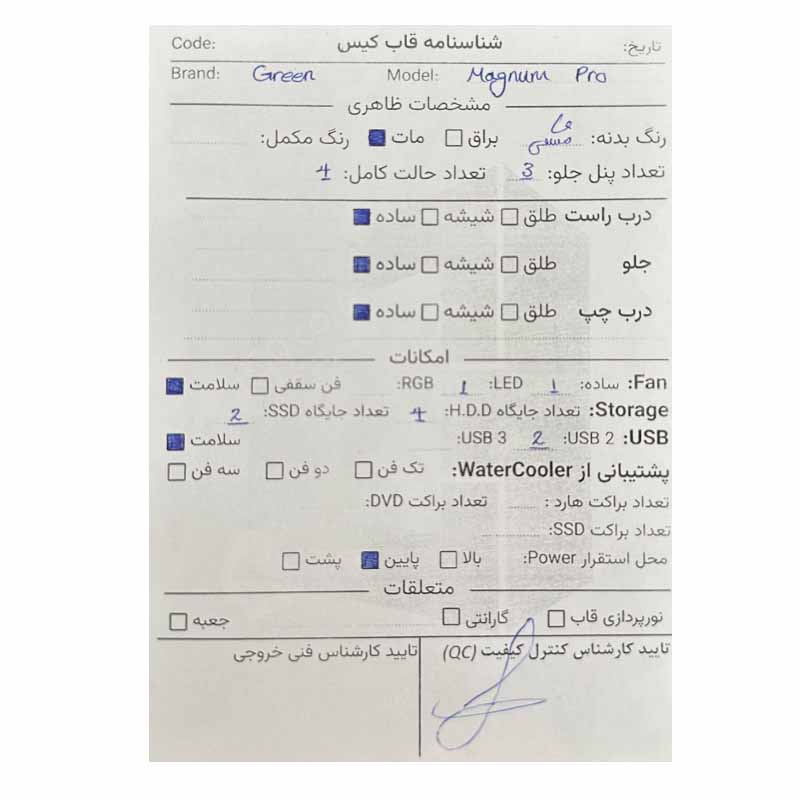 تاریخ: شناسنامه قاب کیس Code:
Brand: Green Model: Magnum Pro
مشخصات ظاهری
رنگ بدنه: مسی براق مات رنگ مکمل:
تعداد پنل جلو: 3 تعداد حالت کامل: 4
درب راست طلق شیشه ساده
جلو طلق شیشه ساده
درب چپ طلق شیشه ساده
امکانات
Fan: ساده: 1 LED: 1 RGB: فن سقفی سلامت
Storage: تعداد جایگاه H.D.D: 4 تعداد جایگاه SSD: 2
USB: USB 2: 2 USB 3: سلامت
پشتیبانی از WaterCooler: تک فن دو فن سه فن
تعداد براکت هارد : تعداد براکت DVD:
تعداد براکت SSD:
محل استقرار Power: بالا پایین پشت
متعلقات
نورپردازی قاب گارانتی جعبه
تایید کارشناس کنترل کیفیت (QC) تایید کارشناس فنی خروجی